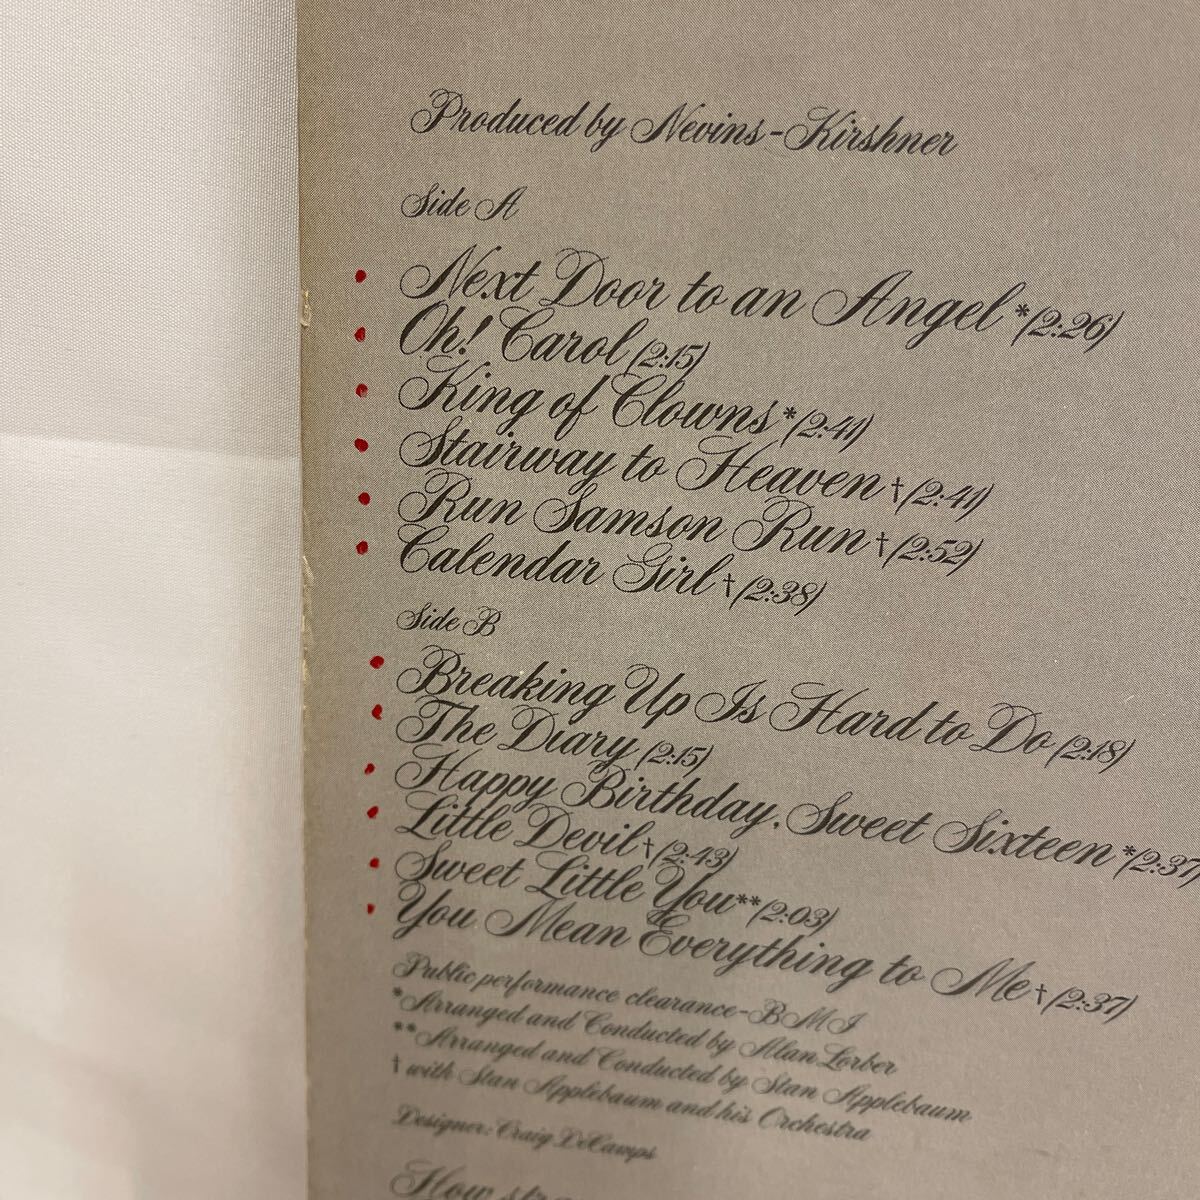 Produced by Nevins-Kirshner
Side A
Next Door to an Angel *(2:26)
Oh! Carol (2:15)
King of Clowns *(2:41)
Stairway to Heaven † (2:41)
Run Samson Run † (2:52)
Calendar Girl † (2:38)
Side B
Breaking Up Is Hard to Do (2:18)
The Diary (2:15)
Happy Birthday, Sweet Sixteen *(2:37)
Little Devil † (2:43)
Sweet Little You **(2:03)
You Mean Everything to Me † (2:37)
Public performance clearance-BMI
*Arranged and Conducted by Alan Lorber
**Arranged and Conducted by Stan Applebaum
† with Stan Applebaum and his Orchestra
Designer: Craig DeCamps
How